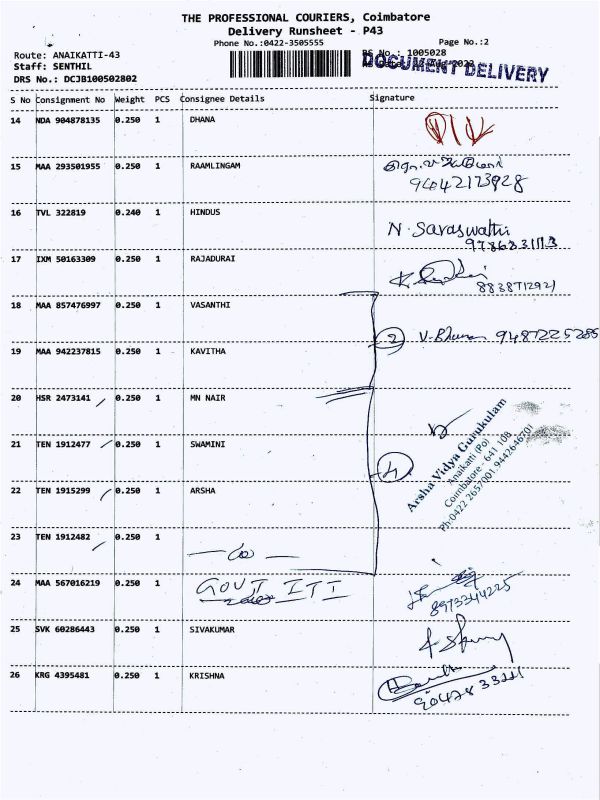 THE PROFESSIONAL COURIERS, Coimbatore
Delivery Runsheet - P43
Phone No.:0422-3505555
Page No.:2
Route: ANAIKATTI-43
Staff: SENTHIL
DRS No.: DCJB100502802
RS No.: 1005028
DOCUMENT DELIVERY
S No Consignment No Weight PCS Consignee Details Signature
14 NDA 904878135 0.250 1 DHANA
15 MAA 293501955 0.250 1 RAAMLINGAM
16 TVL 322819 0.240 1 HINDUS N. Saraswathi
17 IXM 50163309 0.250 1 RAJADURAI
8838712921
18 MAA 857476997 0.250 1 VASANTHI
2 9487225285
19 MAA 942237815 0.250 1 KAVITHA
20 HSR 2473141 0.250 1 MN NAIR
21 TEN 1912477 0.250 1 SWAMINI
4
Arsha Vidya Gurukulam
Anaikatti (Po)
Coimbatore - 641 108
Ph:0422 2657001, 9442646701
22 TEN 1915299 0.250 1 ARSHA
23 TEN 1912482 0.250 1
24 MAA 567016219 0.250 1 GOVT ITI
8973344225
25 SVK 60286443 0.250 1 SIVAKUMAR
26 KRG 4395481 0.250 1 KRISHNA